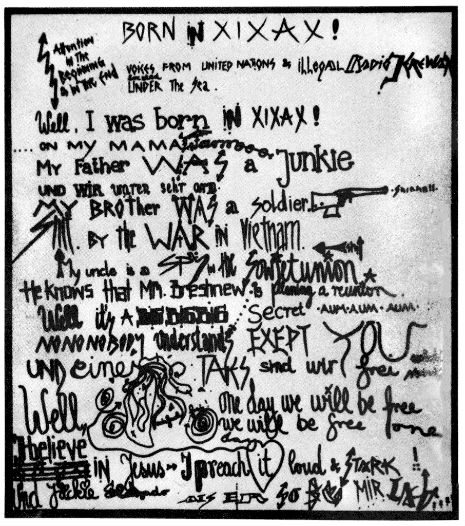 BORN IN XIXAX!
Attention
in the
Beginning
& in the end
VOICES FROM UNITED NATIONS & illegal Radio Jerewan
UNDER The Sea.
Well, I was born IN XIXAX!
ON MY MAMA
My Father WAS a Junkie
UND WIR
MY BROTHER WAS a soldier
BY the WAR in Vietnam.
My uncle is a SPY in the Sowjetunion
He KNOWS that Mr. Breshnew is planing a reunion.
Well it's A Secret AUM-AUM-AUM
NONONOBODY understands EXEPT YOU
UND eines TAGS sind wir free
Well, One day we will be free
we will be free
day
I believe
IN Jesus I preach it loud & STARK !!
Und Jackie
MIR